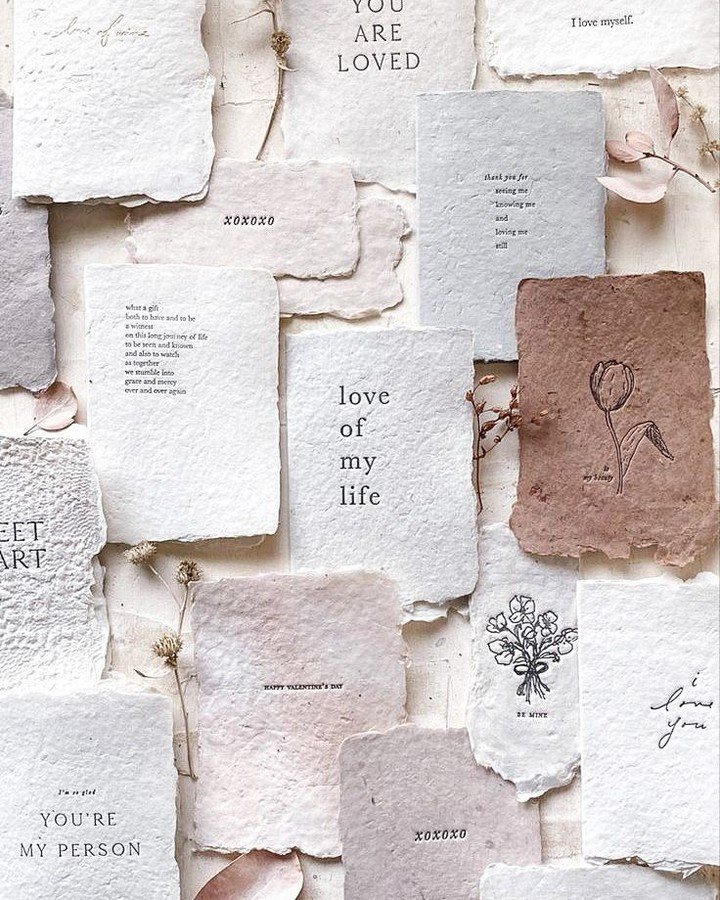 love of mine
YOU
ARE
LOVED
I love myself.
thank you for
seeing me
knowing me
and
loving me
still
xoxoxo
what a gift
both to have and to be
a witness
on this long journey of life
to be seen and known
and also to watch
as together
we stumble into
grace and mercy
over and over again
love
of
my
life
to
my beauty
EET
ART
HAPPY VALENTINE'S DAY
BE MINE
i
love
you
I'm so glad
YOU'RE
MY PERSON
xoxoxo